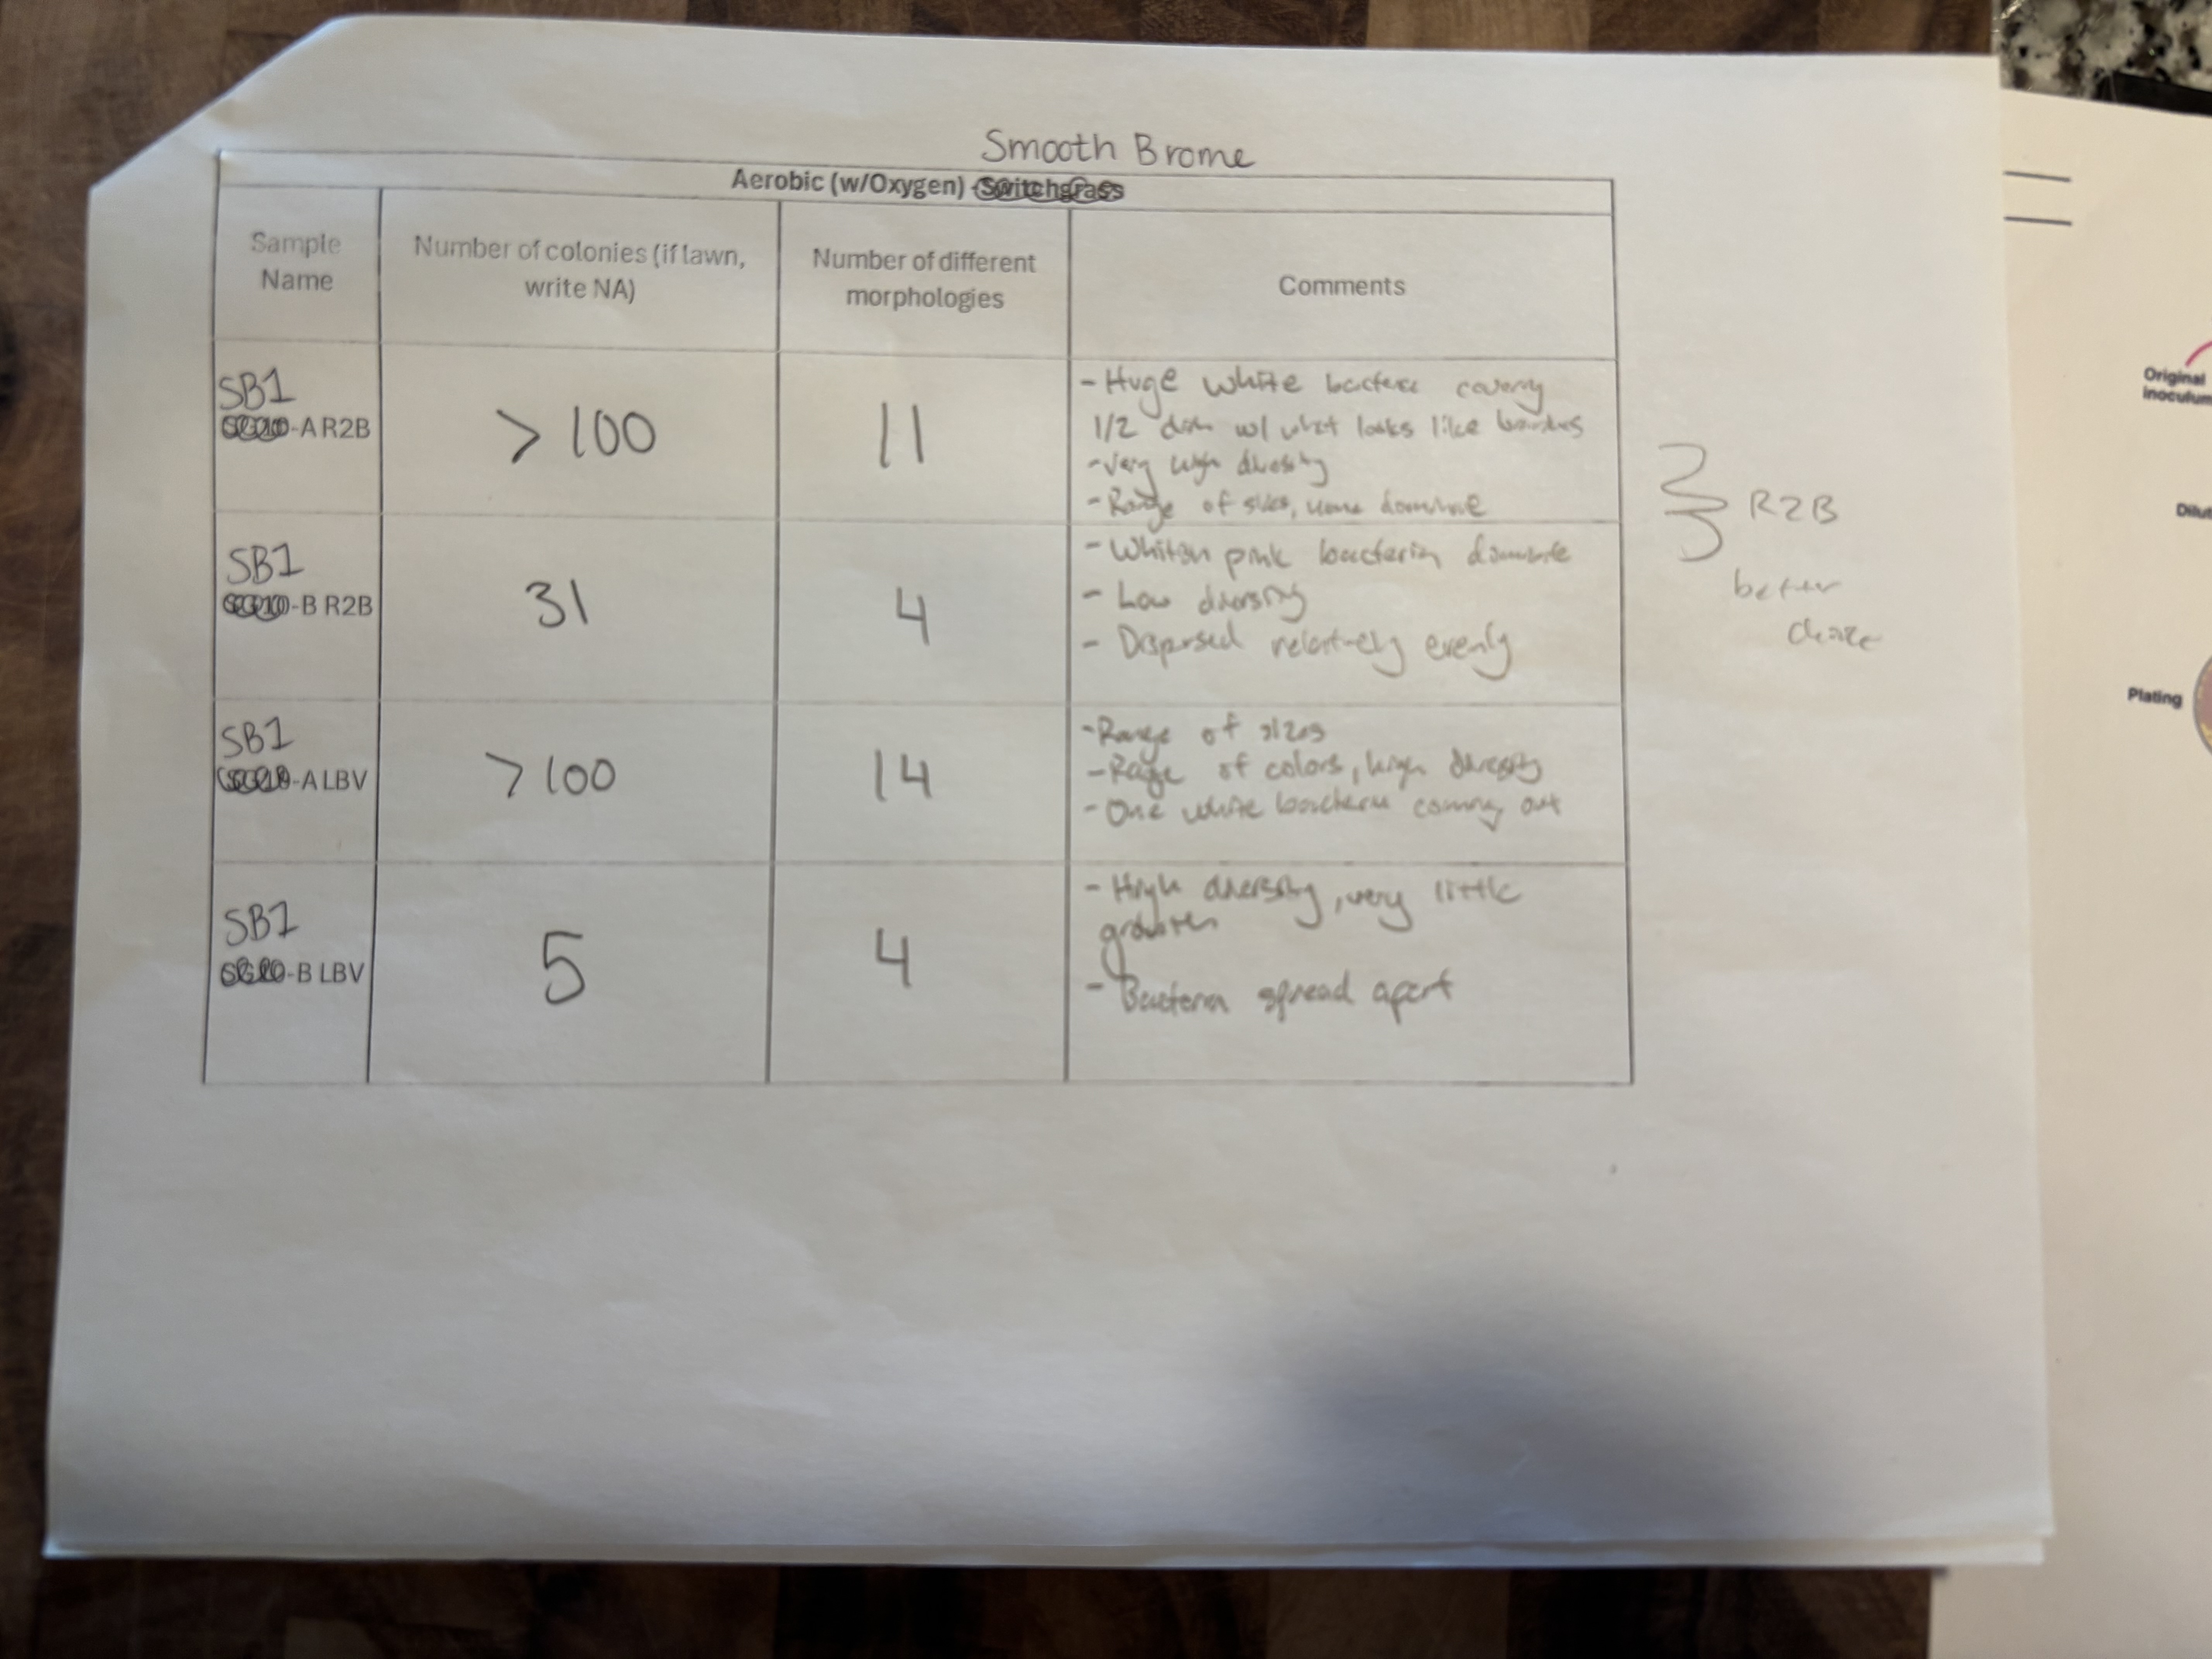 Smooth Brome
Aerobic (w/Oxygen) - Switchgrass
Sample Name
Number of colonies (if lawn, write NA)
Number of different morphologies
Comments
SB1
-A R2B
> 100
11
- Huge white bacteria covering
1/2 dish w/ what looks like branches
- Very high diversity
- Range of sizes, none dominate
SB1
-B R2B
31
4
- Whitish pink bacteria dominate
- Low diversity
- Dispersed relatively evenly
R2B
better
choice
SB1
-A LBV
> 100
14
- Range of sizes
- Range of colors, high diversity
- One white bacteria coming out
SB1
-B LBV
5
4
- High diversity, very little
growth
- Bacteria spread apart
Original
inoculum
Plating